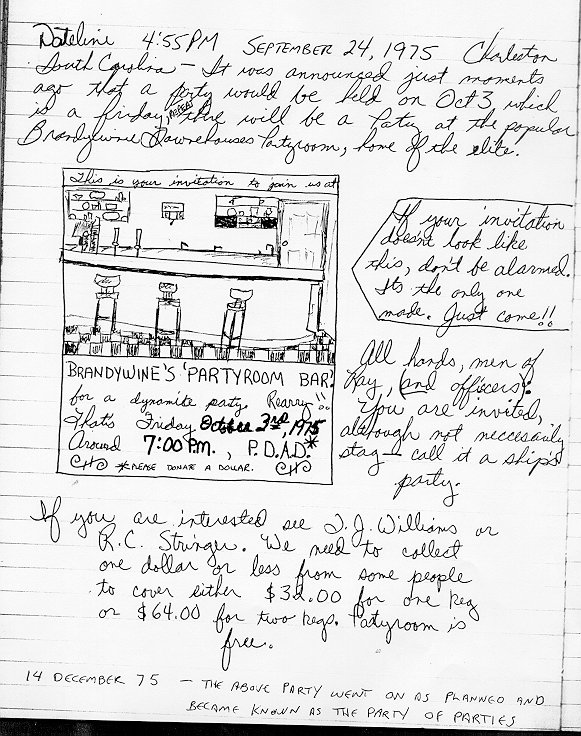 Dateline 4:55 PM September 24, 1975 Charleston
South Carolina - It was announced just moments
ago that a party would be held on Oct 3, which
is a friday, there will be a Paty at the popular
Brandywine Townehouses Partyroom, home of the elite.
This is your invitation to join us at
BRANDYWINE'S 'PARTYROOM BAR'.
for a dynamite party. Rearry!!
That's Friday October 3rd, 1975
Around 7:00 P.M., P.D.A.D.*
*PLEASE DONATE A DOLLAR.
If your invitation
doesn't look like
this, don't be alarmed.
It's the only one
made. Just come!!
All hands, men of
Ray, (and officers):
You are invited,
although not neccesarily
stag - call it a ship's
party.
If you are interested see T.J. Williams or
R.C. Stringer. We need to collect
one dollar or less from some people
to cover either $32.00 for one keg
or $64.00 for two kegs. Patyroom is
free.
14 DECEMBER 75 - THE ABOVE PARTY WENT ON AS PLANNED AND
BECAME KNOWN AS THE PARTY OF PARTIES